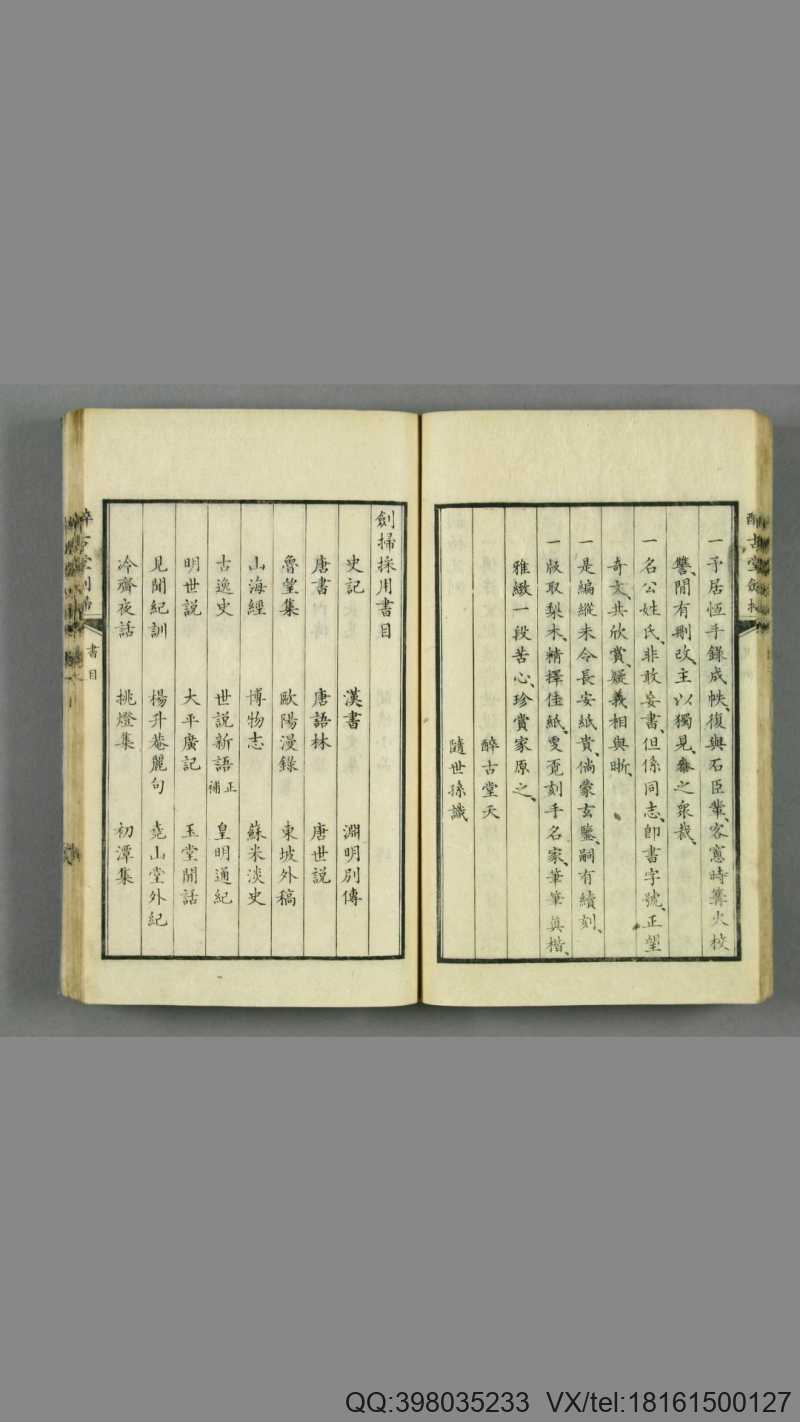 一予居恆手錄成帙、復與石臣輩、客窻時篝火校
讐、間有刪改、主以獨見、叅之衆裁、
一名公姓氏、非敢妄書、但係同志、卽書字號、正望
奇文、共欣賞、疑義相與晰、
一是編縱未令長安紙貴、倘蒙玄鑒、嗣有續刻、
一版取梨木、精擇佳紙、更覔刻手名家、筆筆眞楷、
雅緻一段苦心、珍賞家原之、
醉古堂天
隨世孫識
劍掃採用書目
史記 漢書 淵明別傳
唐書 唐語林 唐世說
魯望集 歐陽漫錄 東坡外稿
山海經 博物志 蘇米淡史
古逸史 世說新語正補 皇明通紀
明世說 大平廣記 玉堂閒話
見聞紀訓 楊升菴麗句 堯山堂外紀
冷齋夜話 挑燈集 初潭集
書目
QQ:398035233 VX/tel:18161500127